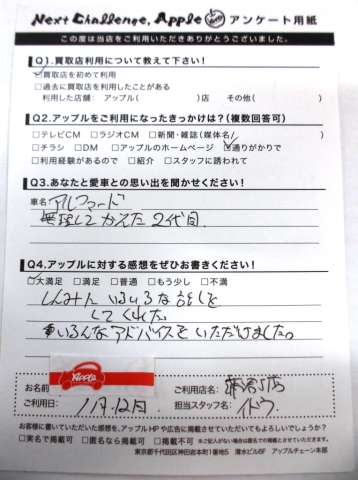 Next Challenge. Apple アンケート用紙
この度は当店をご利用いただきありがとうございました。
Q1.買取店利用について教えて下さい!
☑買取店を初めて利用
□過去に買取店を利用したことがある
利用した店舗: アップル( )店 その他( )
Q2.アップルをご利用になったきっかけは?(複数回答可)
□テレビCM □ラジオCM □新聞・雑誌(媒体名 )
□チラシ □DM □アップルのホームページ ☑通りがかりで
□利用経験があるので □紹介 □スタッフに誘われて
Q3.あなたと愛車との思い出を聞かせください!
車名: アルファード
無理してかえた2代目.
Q4.アップルに対する感想をぜひお書きください!
☑大満足 □満足 □普通 □もう少し □不満
しんみにいろいろな話しを
してくれた.
いろんなアドバイスをいただけました。
お名前
Apple
ご利用店名:
ご利用日: 1月.12月
担当スタッフ名: イトウ
お客様に書いていただいた感想を、アップルHPや広告に掲載させていただいてもよろしいでしょうか?
□実名で掲載可 □匿名なら掲載可 □掲載不可 ※ご記入がない場合は匿名での掲載とさせていただきます。
東京都千代田区神田岩本町1番地5 清水ビル6F アップルチェーン本部